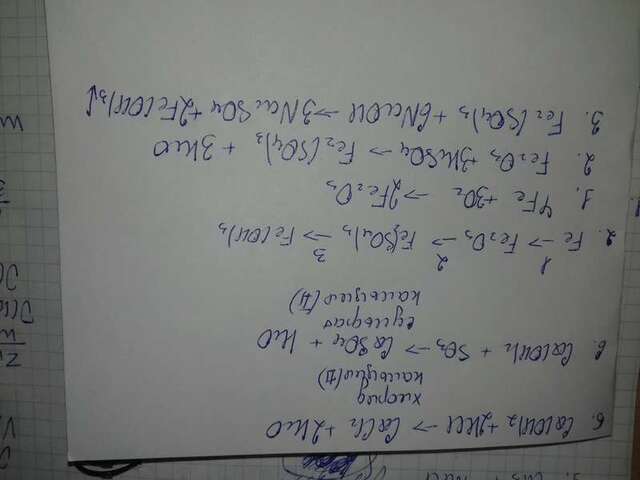 б. Ca(OH)2 + 2HCl → CaCl2 + 2H2O
хлорид
кальция (II)
в. Ca(OH)2 + SO3 → CaSO4 + H2O
сульфат
кальция (II)
2. Fe 1→ Fe2O3 2→ Fe2(SO4)3 3→ Fe(OH)3
1. 4Fe + 3O2 → 2Fe2O3
2. Fe2O3 + 3H2SO4 → Fe2(SO4)3 + 3H2O
3. Fe2(SO4)3 + 6NaOH → 3Na2SO4 + 2Fe(OH)3↓